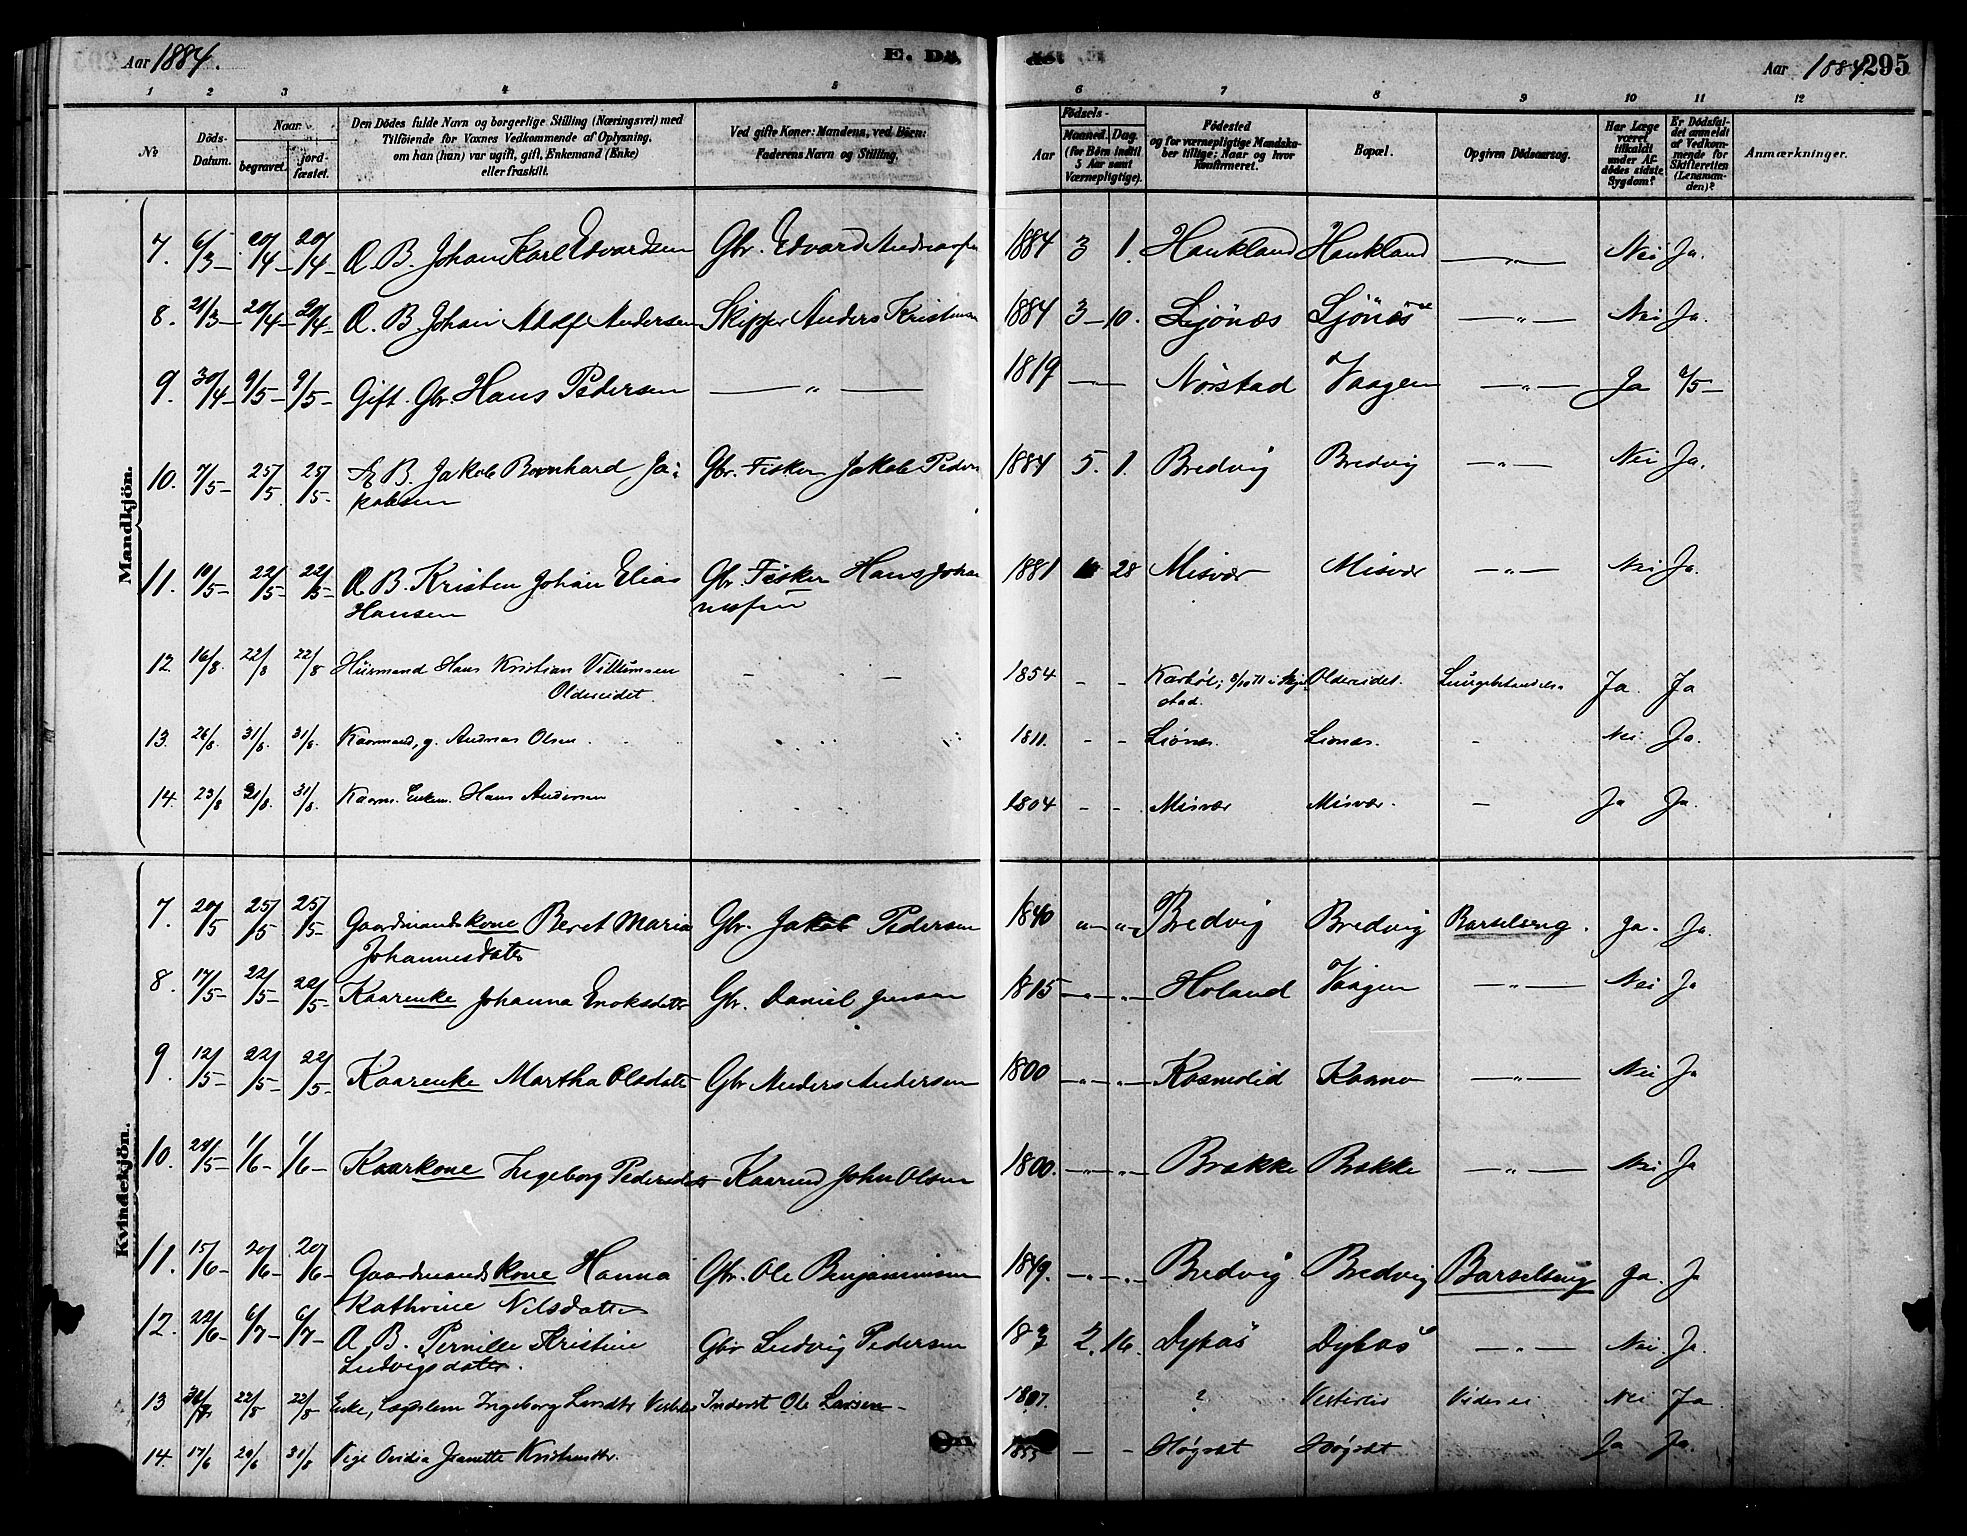 Aar 1884.
E. Dö
de.
Aar 1884 295
1 2 3 4 5 6 7 8 9 10 11 12
No
Döds-Datum.
Naar
begravet.
jord-fæstet.
Den Dödes fulde Navn og borgerlige Stilling (Næringsvei) med
Tilföiende for Voxnes Vedkommende af Oplysning,
om han (hun) var ugift, gift, Enkemand (Enke)
eller fraskilt.
Ved gifte Koner: Mandens, ved Börn:
Faderens Navn og Stilling.
Födsels-
Aar
Maaned. Dag.
(for Börn indtil
5 Aar samt
Værnepligtige).
Födested
og for værnepligtige Mandska-
ber tillige: Naar og hvor
konfirmeret.
Bopæl.
Opgiven Dödsaarsag.
Har Læge
været
tilkaldt
under Af-
dödes sidste
Sygdom?
Er Dödsfal-
det anmeldt
af Vedkom-
mende for
Skifteretten
(Lensman-
den)?
Anmærkninger.
Mandkjön.
7. 6/3 20/4 20/4 Æ. B. Johan Karl Edvardsen Gbr. Edvard Andreassen 1884 3 1. Haukland Haukland — „ — Nei Ja.
8. 21/3 20/4 20/4 Æ. B. Johan Adolf Andersen Skipper Anders Kristensen 1884 3 10. Ljönæs Ljönæs — „ — Nei Ja.
9. 30/4 9/5 9/5 Gift. Gbr. Hans Pedersen — „ — 1819 — Norstad Vaagen — „ — Ja /5
10. 7/5 25/5 25/5 Æ B. Jakob Bernhard Ja-
kobsen
Gbr. Fisker Jakob Peders 1884 5. 1. Bredvig Bredvig — „ — Nei Ja.
11. 10/5 22/5 22/5 Æ B. Kristen Johan Elias
Hansen
Gbr Fisker Hans Johan
nessen
1881 28 Misvær Misvær — „ — Nei Ja.
12. 16/8. 22/8 22/8 Huusmand Hans Kristian Villumsen
Oldereidet.
- - 1854 - - Karbøl; 8/10 71 i Skjer
stad.
Oldereidet. Lungebetændelse Ja. Ja
13. 26/8. 31/8. 31/8. Kaarmand, g. Andreas Olsen 1811. - - Liønes. Liønes. - Nei Ja.
14. 23/8 31/8 31/8. Kaarm. Enkem. Hans Andersen 1804 - - Misvær Misvær. - Ja Ja.
Kvindekjön.
7. 20/5 25/5 25/5 Gaardmandskone Beret Maria
Johannesdatter
Gbr. Jakob Pedersen 1840 „ „ Bredvig Bredvig Barselseng. Ja. Ja.
8. 17/5 22/5 22/5 Kaarenke Johanna Enoksdatter Gbr. Daniel Jensen 1815 „ „ Holand Vaagen — „ — Nei Ja
9. 12/5 22/5 22/5 Kaarenke Martha Olsdatter Gbr Anders Andersen 1800 „ „ Kosmolid Kosmo — „ — Nei Ja
10. 24/5 1/6 1/6 Kaarkone Ingeborg Pedersdatter Kaarmd John Olsen 1800. „ „ Brække Brække — „ — Nei Ja
11. 15/6 20/6 20/6 Gaardmandskone Hanna
Kathrine Nilsdatter
Gbr. Ole Benjaminsen 1849. „ „ Bredvig Bredvig Barselseng Ja. Ja
12. 22/6 6/7 6/7 Æ B. Pernille Kristine
Ludvigsdatter.
Gbr Ludvig Pedersen 2. 16. Dybås Dybås — „ — Nei. Ja.
13 22/8 22/8 Enke, Lægdslem Ingeborg Larsdtr Inderst Ole Larsen 1807. ? Vesterli Nei Ja
14. 17/6 29/6 31/8 Pige Ovidia Jeanette Kristensdtr. - - Høgset Høgset Ja Ja.